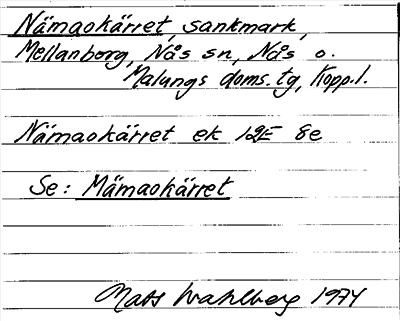 Nämaokärret, sankmark,
Mellanborg, Nås sn, Nås o.
Malungs doms. tg, Kopp. l.
Nämaokärret ek 12E 8e
Se: Mämaokärret
Mats Wahlberg 1974